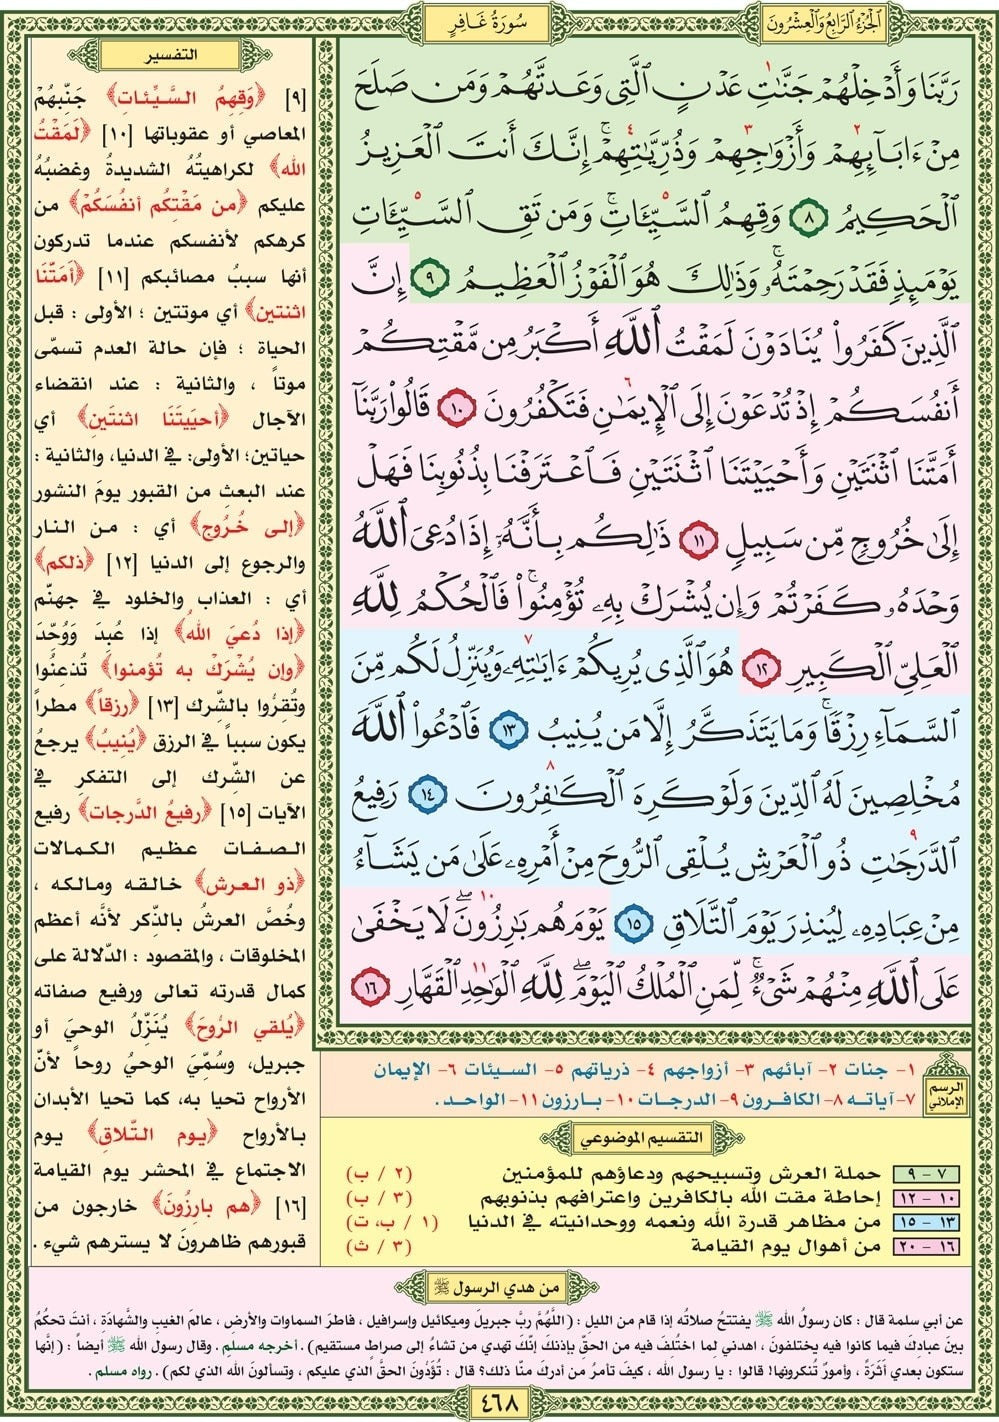 الجُزءُ الرَّابِعُ وَالعِشْرُون
سُورَةُ غَافِرٍ
رَبَّنَا وَأَدْخِلْهُمْ جَنَّٰتِ عَدْنٍ ٱلَّتِى وَعَدتَّهُمْ وَمَن صَلَحَ
مِنْ ءَابَآئِهِمْ وَأَزْوَٰجِهِمْ وَذُرِّيَّٰتِهِمْ ۚ إِنَّكَ أَنتَ ٱلْعَزِيزُ
ٱلْحَكِيمُ ٨ وَقِهِمُ ٱلسَّيِّـَٔاتِ ۚ وَمَن تَقِ ٱلسَّيِّـَٔاتِ
يَوْمَئِذٍ فَقَدْ رَحِمْتَهُۥ ۚ وَذَٰلِكَ هُوَ ٱلْفَوْزُ ٱلْعَظِيمُ ٩ إِنَّ
ٱلَّذِينَ كَفَرُوا۟ يُنَادَوْنَ لَمَقْتُ ٱللَّهِ أَكْبَرُ مِن مَّقْتِكُمْ
أَنفُسَكُمْ إِذْ تُدْعَوْنَ إِلَى ٱلْإِيمَٰنِ فَتَكْفُرُونَ ١٠ قَالُوا۟ رَبَّنَآ
أَمَتَّنَا ٱثْنَتَيْنِ وَأَحْيَيْتَنَا ٱثْنَتَيْنِ فَٱعْتَرَفْنَا بِذُنُوبِنَا فَهَلْ
إِلَىٰ خُرُوجٍ مِّن سَبِيلٍ ١١ ذَٰلِكُم بِأَنَّهُۥٓ إِذَا دُعِىَ ٱللَّهُ
وَحْدَهُۥ كَفَرْتُمْ وَإِن يُشْرَكْ بِهِۦ تُؤْمِنُوا۟ ۚ فَٱلْحُكْمُ لِلَّهِ
ٱلْعَلِىِّ ٱلْكَبِيرِ ١٢ هُوَ ٱلَّذِى يُرِيكُمْ ءَايَٰتِهِۦ وَيُنَزِّلُ لَكُم مِّنَ
ٱلسَّمَآءِ رِزْقًا ۚ وَمَا يَتَذَكَّرُ إِلَّا مَن يُنِيبُ ١٣ فَٱدْعُوا۟ ٱللَّهَ
مُخْلِصِينَ لَهُ ٱلدِّينَ وَلَوْ كَرِهَ ٱلْكَٰفِرُونَ ١٤ رَفِيعُ
ٱلدَّرَجَٰتِ ذُو ٱلْعَرْشِ يُلْقِى ٱلرُّوحَ مِنْ أَمْرِهِۦ عَلَىٰ مَن يَشَآءُ
مِنْ عِبَادِهِۦ لِيُنذِرَ يَوْمَ ٱلتَّلَاقِ ١٥ يَوْمَ هُم بَٰرِزُونَ ۖ لَا يَخْفَىٰ
عَلَى ٱللَّهِ مِنْهُمْ شَىْءٌ ۚ لِّمَنِ ٱلْمُلْكُ ٱلْيَوْمَ ۖ لِلَّهِ ٱلْوَٰحِدِ ٱلْقَهَّارِ ١٦
التفسير
[٩] ﴿وَقِهِمُ السَّيِّئاتِ﴾ جَنِّبهُمْ
المعاصي أو عقوباتها [١٠] ﴿لَمَقْتُ
الله﴾ لكراهيتُهُ الشديدةُ وغضبُهُ
عليكم ﴿من مَقْتِكُم أنفُسَكُمْ﴾ من
كرهكم لأنفسكم عندما تدركون
أنها سببُ مصائبكم [١١] ﴿أَمَتّنَا
اثنتين﴾ أي موتتين ؛ الأولى : قبل
الحياة ؛ فإن حالة العدم تسمّى
موتاً ، والثانية : عند انقضاء
الآجال ﴿أحيَيتَنَا اثنتَينِ﴾ أي
حياتين؛ الأولى: في الدنيا، والثانية :
عند البعثِ من القبور يومَ النشور
﴿إلى خُرُوجٍ﴾ أي : من النار
والرجوع إلى الدنيا [١٢] ﴿ذلكم﴾
أي : العذاب والخلود في جهنّم
﴿إذا دُعيَ اللهُ﴾ إذا عُبِدَ وَوُحِّدَ
﴿وإن يُشْرَكْ به تُؤمنوا﴾ تُذعِنُوا
وتُقِرُّوا بالشِّرك [١٣] ﴿رزقاً﴾ مطراً
يكون سبباً في الرزق ﴿يُنِيبُ﴾ يرجعُ
عن الشِّرك إلى التفكرِ في
الآيات [١٥] ﴿رفيعُ الدَّرجات﴾ رفيع
الصفات عظيم الكمالات
﴿ذو العرش﴾ خالقه ومالكه ،
وخُصَّ العرشُ بالذِّكر لأنَّه أعظم
المخلوقات ، والمقصود : الدّلالة على
كمال قدرته تعالى ورفيع صفاته
﴿يُلقي الرُّوحَ﴾ يُنَزِّلُ الوحيَ أو
جبريل، وسُمِّيَ الوحيُ روحاً لأنّ
الأرواح تحيا به، كما تحيا الأبدان
بالأرواح ﴿يوم التّلاقِ﴾ يوم
الاجتماع في المحشر يوم القيامة
[١٦] ﴿هم بارِزُونَ﴾ خارجون من
قبورهم ظاهرونَ لا يسترهم شيء .
الرسم
الإملائي
١- جنات ٢- آبائهم ٣- أزواجهم ٤- ذرياتهم ٥- السيئات ٦- الإيمان
٧- آياته ٨- الكافرون ٩- الدرجات ١٠- بارزون ١١- الواحد .
التقسيم الموضوعي
٧ - ٩ حملة العرش وتسبيحهم ودعاؤهم للمؤمنين (٢ / ب)
١٠ - ١٢ إحاطة مقت الله بالكافرين واعترافهم بذنوبهم (٣ / ب)
١٣ - ١٥ من مظاهر قدرة الله ونعمه ووحدانيته في الدنيا (١ / ب، ت)
١٦ - ٢٠ من أهوال يوم القيامة (٣ / ث)
من هدي الرسول ﷺ
عن أبي سلمة قال : كان رسولُ الله ﷺ يفتتحُ صلاتَه إذا قام من الليلِ : (اللَّهُمَّ ربَّ جبريلَ وميكائيل وإسرافيل ، فاطرَ السماوات والأرضِ ، عالمَ الغيبِ والشَّهادَةِ ، أنتَ تحكُمُ
بينَ عبادِكَ فيما كانوا فيه يختلفونَ ، اهدني لما اختُلف فيه من الحقّ بإذنك إنّكَ تهدي من تشاءُ إلى صراطٍ مستقيم) . أخرجه مسلم . وقال رسول الله ﷺ أيضاً : (إنَّها
ستكون بعدي أَثَرَةٌ ، وأمورٌ تُنكرونها! قالوا : يا رسول الله ، كيفَ تأمرُ من أدركَ منّا ذلك؟ قال : تُؤَدُّونَ الحقَّ الذي عليكم ، وتسألونَ الله الذي لكم) . رواه مسلم .
٤٦٨